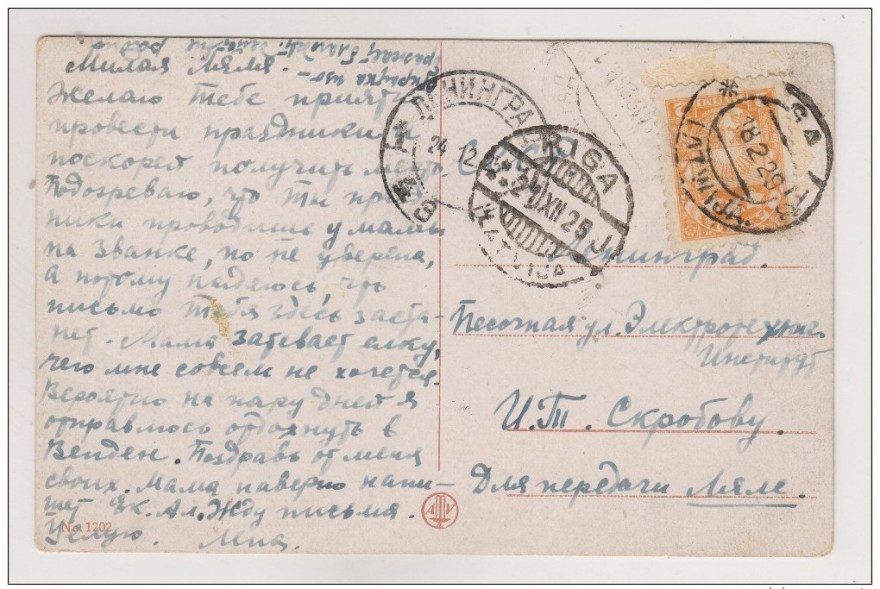 Милая Ляля.
Желаю тебе прият.
провести праздники и
поскорей получить место.
Подозреваю, что ты празд
ники проводишь у мамы
на Званке, но не уверена,
а потому надеюсь, что
письмо тебя здесь заста-
нет. Мама затевает елку,
чего мне совсем не хочется.
Вероятно на пару дней я
отправлюсь отдохнуть в
Венден. Поздравь от меня
своих. Мама наверно напи-
шет Ек. Ал. Жду письма.
Целую. Лена.
No. 1202
ЛЕНИНГРАД
24.12.2
RIGA
XII 25
LATVIJA
RIGA
18.2.29
LATVIJA
Ленинград.
Песочная ул. Электротехнич.
Институт
И.Т. Скробову.
Для передачи Ляле.